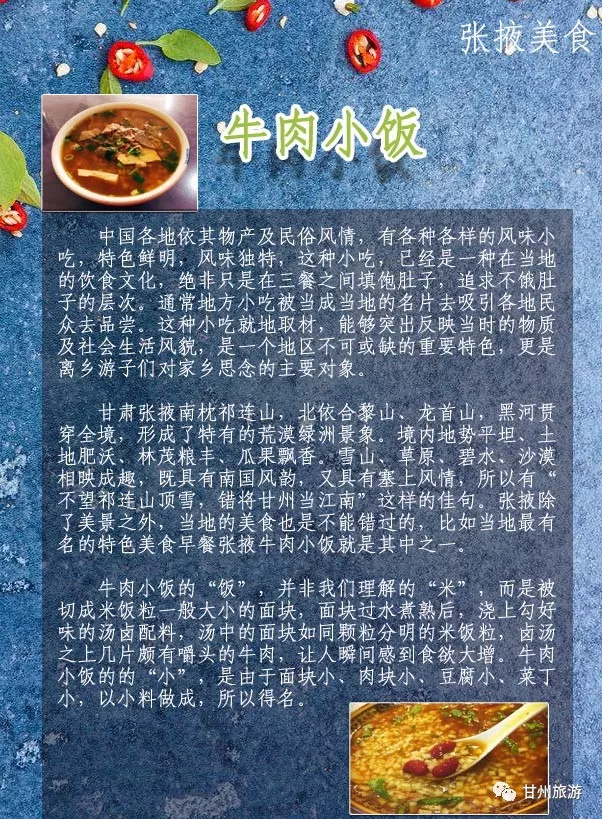 张掖美食
牛肉小饭
中国各地依其物产及民俗风情，有各种各样的风味小
吃，特色鲜明，风味独特，这种小吃，已经是一种在当地
的饮食文化，绝非只是在三餐之间填饱肚子，追求不饿肚
子的层次。通常地方小吃被当成当地的名片去吸引各地民
众去品尝。这种小吃就地取材，能够突出反映当时的物质
及社会生活风貌，是一个地区不可或缺的重要特色，更是
离乡游子们对家乡思念的主要对象。
甘肃张掖南枕祁连山，北依合黎山、龙首山，黑河贯
穿全境，形成了特有的荒漠绿洲景象。境内地势平坦、土
地肥沃、林茂粮丰、瓜果飘香。雪山、草原、碧水、沙漠
相映成趣，既具有南国风韵，又具有塞上风情，所以有“
不望祁连山顶雪，错将甘州当江南”这样的佳句。张掖除
了美景之外，当地的美食也是不能错过的，比如当地最有
名的特色美食早餐张掖牛肉小饭就是其中之一。
牛肉小饭的“饭”，并非我们理解的“米”，而是被
切成米饭粒一般大小的面块，面块过水煮熟后，浇上勾好
味的汤卤配料，汤中的面块如同颗粒分明的米饭粒，卤汤
之上几片颇有嚼头的牛肉，让人瞬间感到食欲大增。牛肉
小饭的的“小”，是由于面块小、肉块小、豆腐小、菜丁
小，以小料做成，所以得名。
甘州旅游